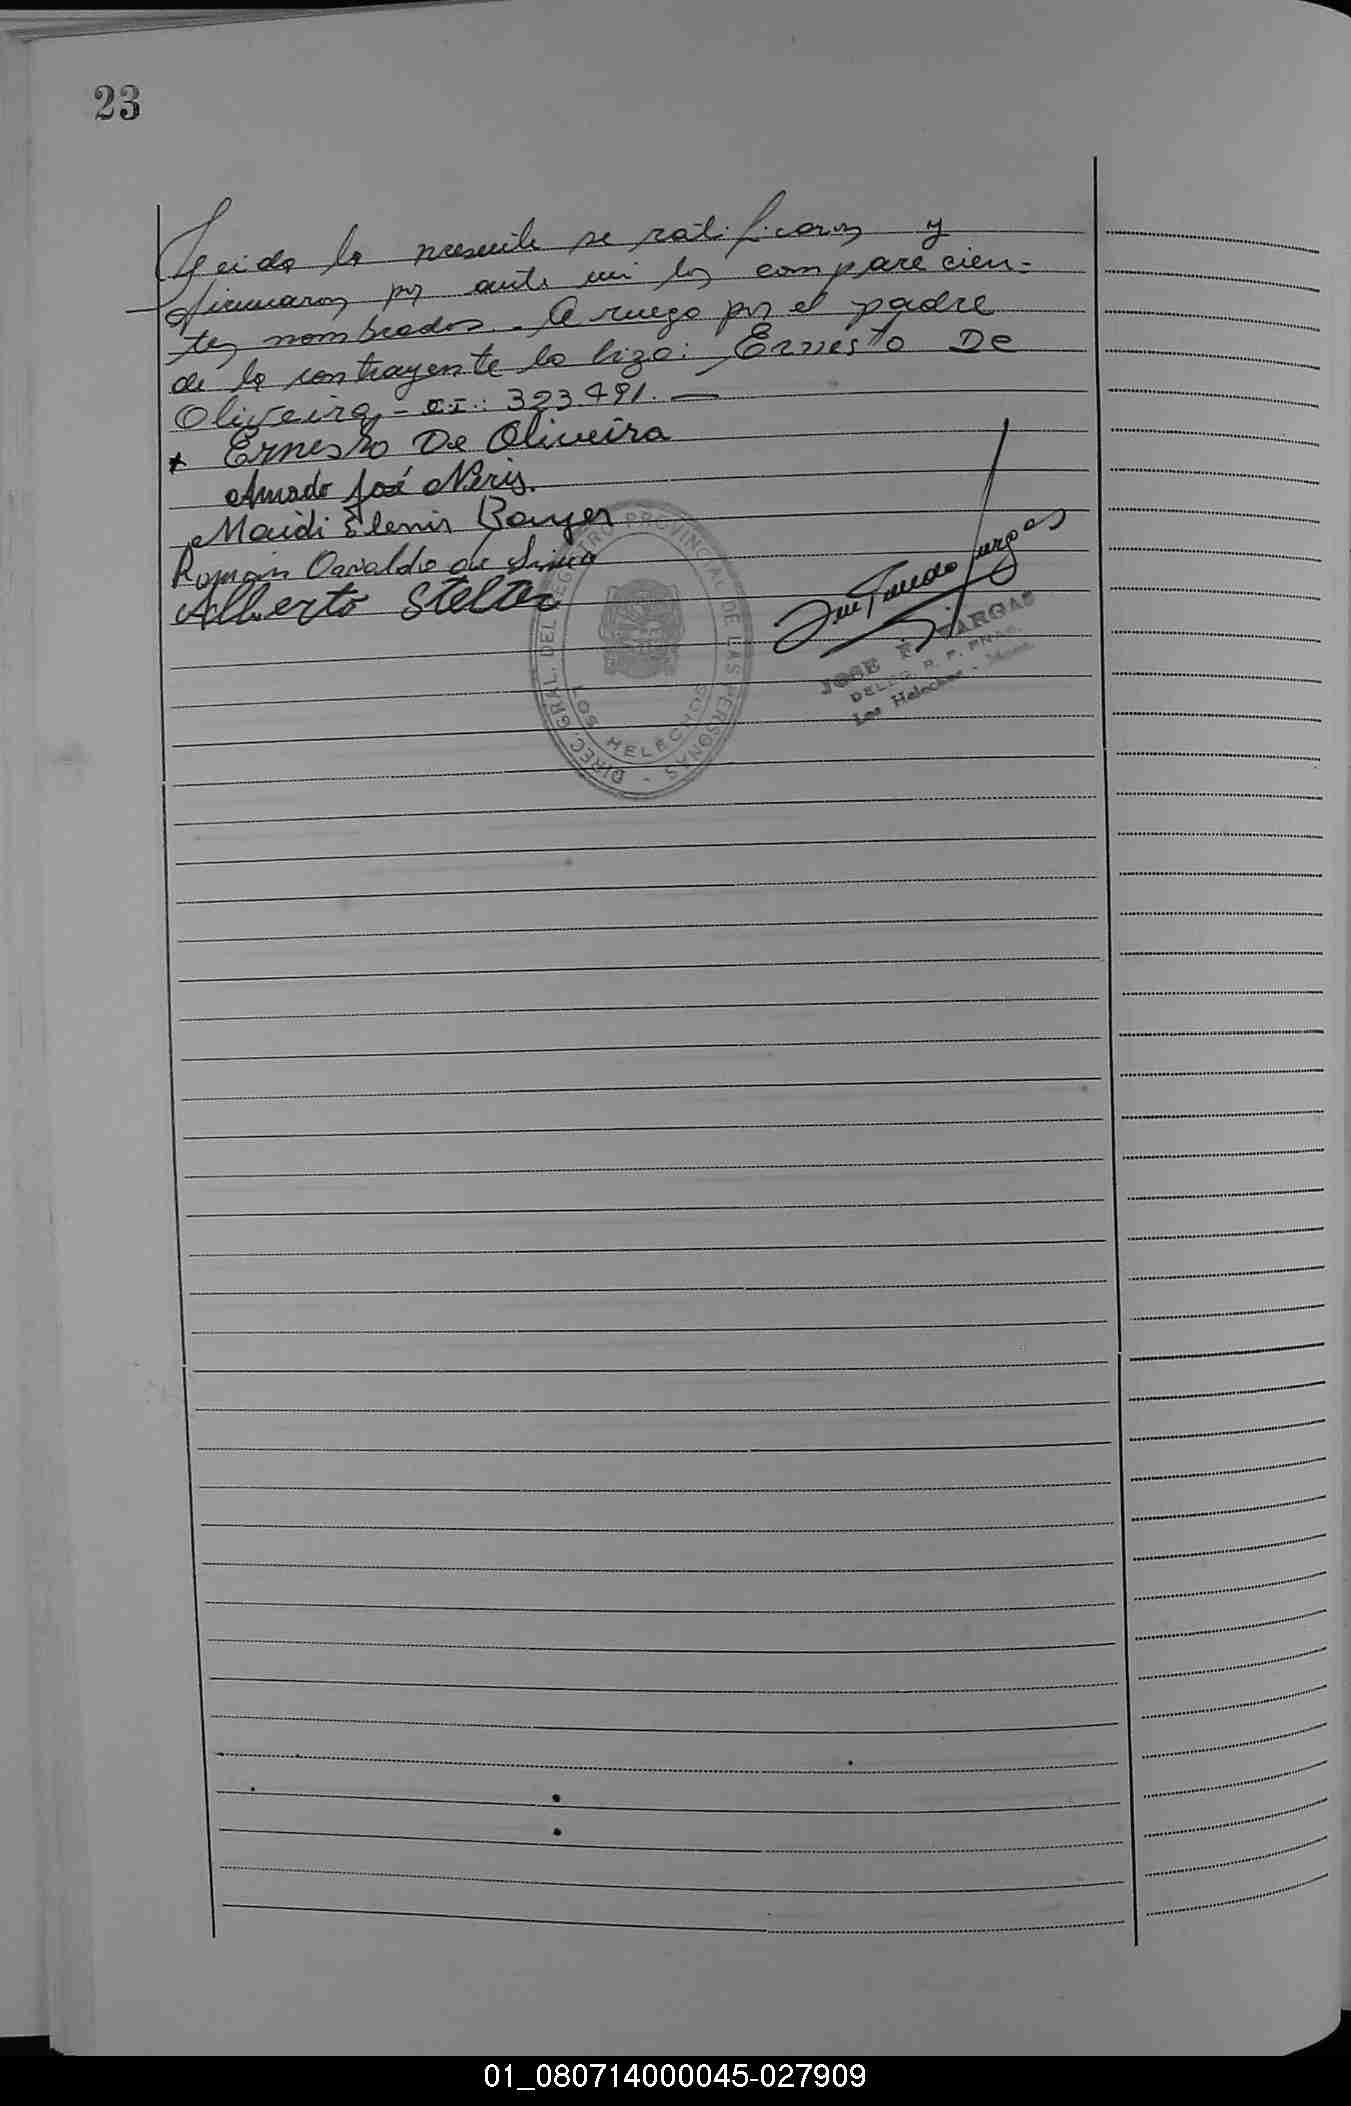 23
Leida la presente se ratificaron y
firmaron por ante mi los comparecien-
tes nombrados. A ruego por el padre
de la contrayente lo hizo: Ernesto De
Oliveira - C.I.: 323.491. —
x Ernesto De Oliveira
Amado José Neris.
Maidi Elenir Bayer
Román Osvaldo de Lima
Alberto Stelter
DIREC. GRAL. DEL REGISTRO PROVINCIAL DE LAS PERSONAS -
LOS HELECHOS
JOSE F. VARGAS
DELEG. R. P. PNAS.
Los Helechos - Mnes.
01_080714000045-027909